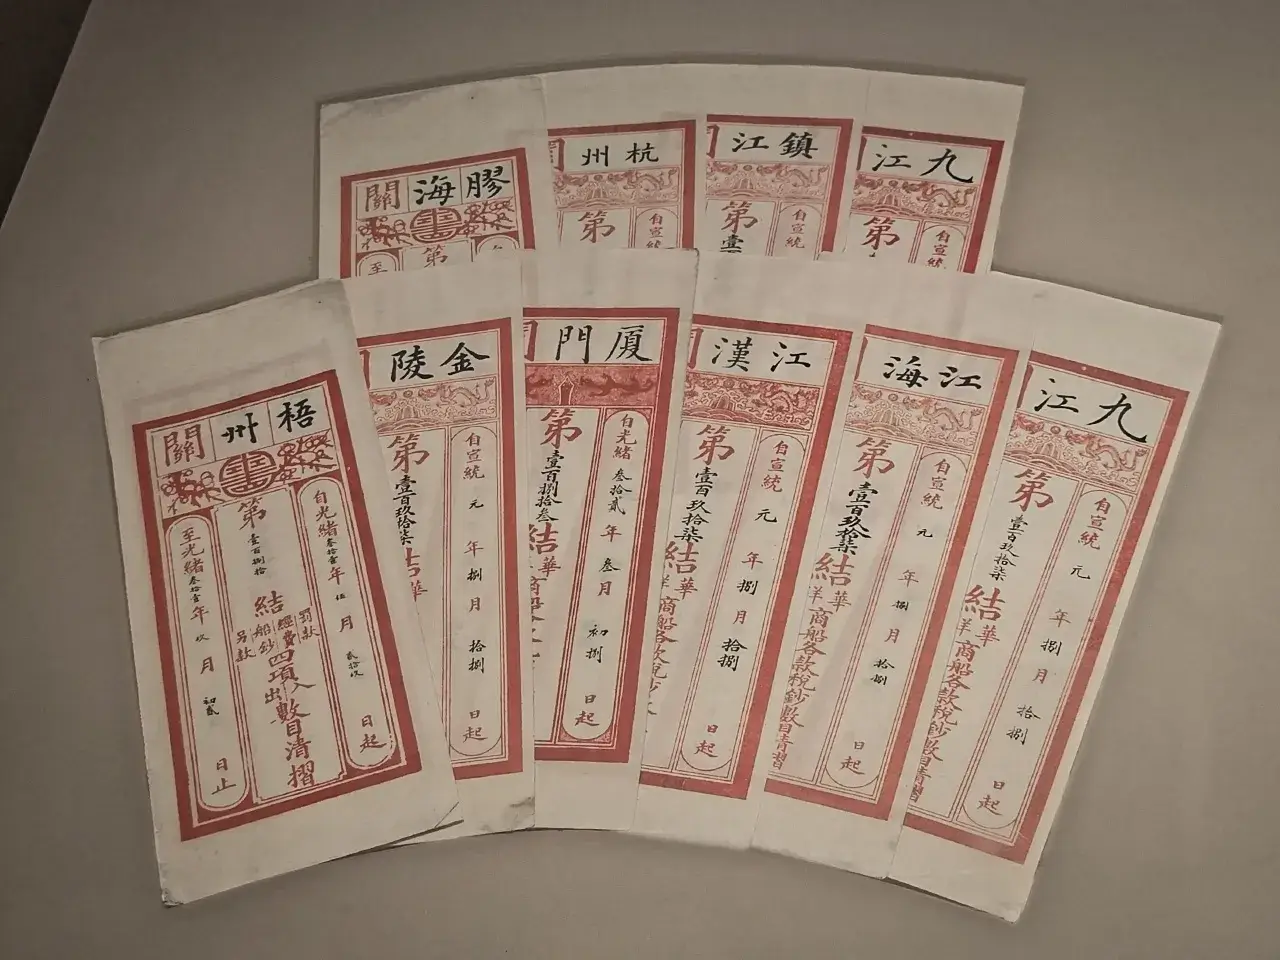 膠海關
第
至
杭州
自宣統
第
鎮江
自宣統
第壹百
九江
自宣統
第
梧州關
自光緒叁拾壹年伍月貳拾玖日起
第壹百捌拾結
罰款
經費
船鈔
另款
四項入出數目清摺
至光緒叁拾壹年玖月初貳日止
金陵
自宣統元年捌月拾捌日起
第壹百玖拾柒結
華
厦門
自光緒叁拾貳年叁月初捌日起
第壹百捌拾叁結
華
商船
江漢
自宣統元年捌月拾捌日起
第壹百玖拾柒結
華洋商船各款稅鈔
江海
自宣統元年捌月拾捌日起
第壹百玖拾柒結
華洋商船各款稅鈔數目清摺
九江
自宣統元年捌月拾捌日起
第壹百玖拾柒結
華洋商船各款稅鈔數目清摺